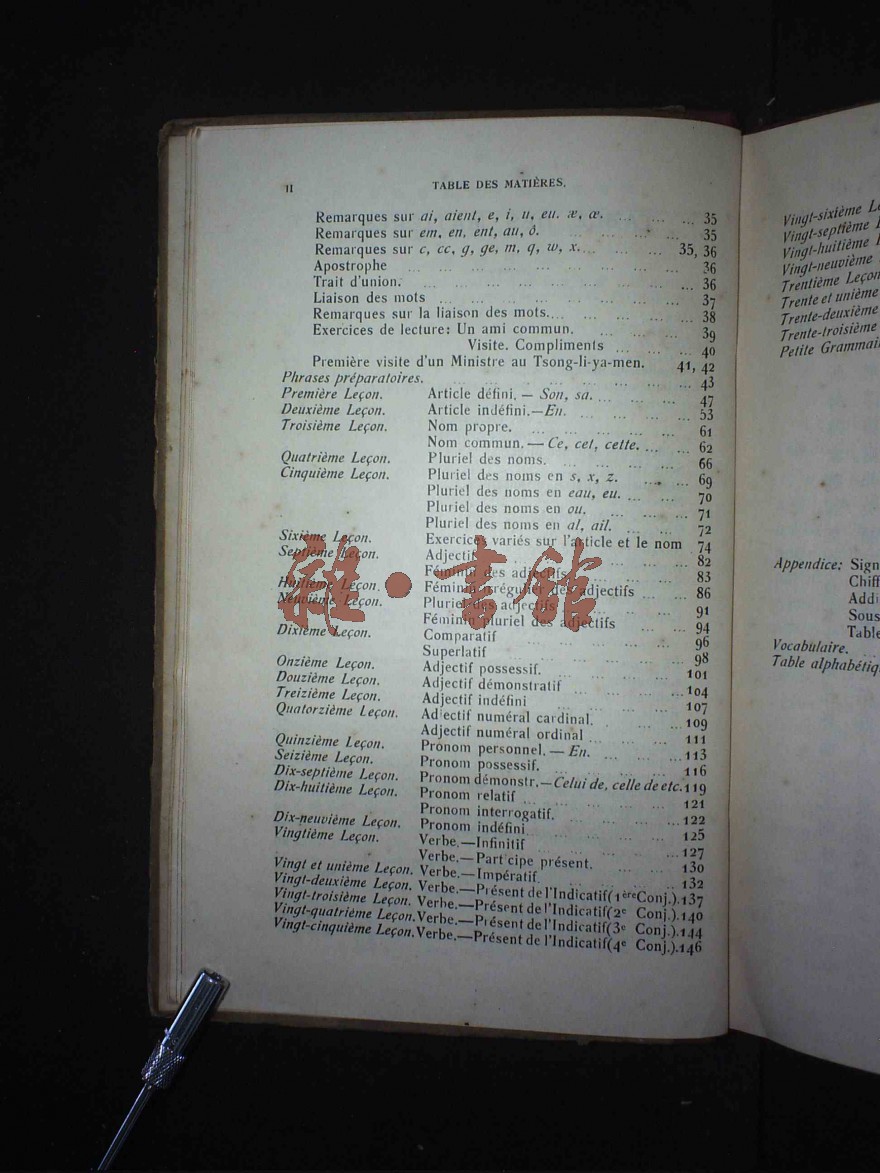 II TABLE DES MATIÈRES.
Remarques sur ai, aient, e, i, u, eu. æ, œ. ... ... ... 35
Remarques sur em, en, ent, au, ô. ... ... 35
Remarques sur c, cc, g, ge, m, q, w, x.... ... ... ... 35, 36
Apostrophe ... ... ... ... ... ... ... 36
Trait d'union. ... ... ... ... ... ... ... 36
Liaison des mots ... ... ... ... ... ... ... 37
Remarques sur la liaison des mots.... ... ... ... 38
Exercices de lecture: Un ami commun. ... ... ... 39
Visite. Compliments ... ... ... 40
Première visite d'un Ministre au Tsong-li-ya-men. 41, 42
Phrases préparatoires. ... ... ... ... ... ... 43
Première Leçon. Article défini. — Son, sa. ... ... ... 47
Deuxième Leçon. Article indéfini.—En. ... ... ... 53
Troisième Leçon. Nom propre. ... ... ... ... 61
Nom commun. — Ce, cet, cette. ... ... 62
Quatrième Leçon. Pluriel des noms. ... ... ... ... 66
Cinquième Leçon. Pluriel des noms en s, x, z. ... ... 69
Pluriel des noms en eau, eu. ... ... ... 70
Pluriel des noms en ou. ... ... ... 71
Pluriel des noms en al, ail. ... ... 72
Sixième Leçon. Exercices variés sur l'article et le nom 74
Septième Leçon. Adjectif ... ... 82
Féminin des adjectifs ... ... 83
Huitième Leçon. Féminin irrégulier des adjectifs ... ... 86
Neuvième Leçon. Pluriel des adjectifs ... ... 91
Féminin pluriel des adjectifs ... ... 94
Dixième Leçon. Comparatif ... ... ... 96
Superlatif ... ... ... 98
Onzième Leçon. Adjectif possessif. ... ... ... 101
Douzième Leçon. Adjectif démonstratif ... ... ... 104
Treizième Leçon. Adjectif indéfini ... ... ... 107
Quatorzième Leçon. Adjectif numéral cardinal. ... ... 109
Adjectif numéral ordinal ... ... ... 111
Quinzième Leçon. Pronom personnel. — En. ... ... 113
Seizième Leçon. Pronom possessif. ... ... ... 116
Dix-septième Leçon. Pronom démonstr.—Celui de, celle de etc. 119
Dix-huitième Leçon. Pronom relatif ... ... ... 121
Pronom interrogatif. ... ... ... 122
Dix-neuvième Leçon. Pronom indéfini ... ... ... 125
Vingtième Leçon. Verbe.—Infinitif ... ... ... 127
Verbe.—Participe présent. ... ... 130
Vingt et unième Leçon. Verbe.—Impératif. ... ... 132
Vingt-deuxième Leçon. Verbe.—Présent de l'Indicatif (1ère Conj.). 137
Vingt-troisième Leçon. Verbe.—Présent de l'Indicatif (2e Conj.). 140
Vingt-quatrième Leçon. Verbe.—Présent de l'Indicatif (3e Conj.). 144
Vingt-cinquième Leçon. Verbe.—Présent de l'Indicatif (4e Conj.). 146
書館
Vingt-sixième
Vingt-septième
Vingt-huitième
Vingt-neuvième
Trentième Leçon
Trente et unième
Trente-deuxième
Trente-troisième
Petite
Appendice:
Vocabulaire.
Table